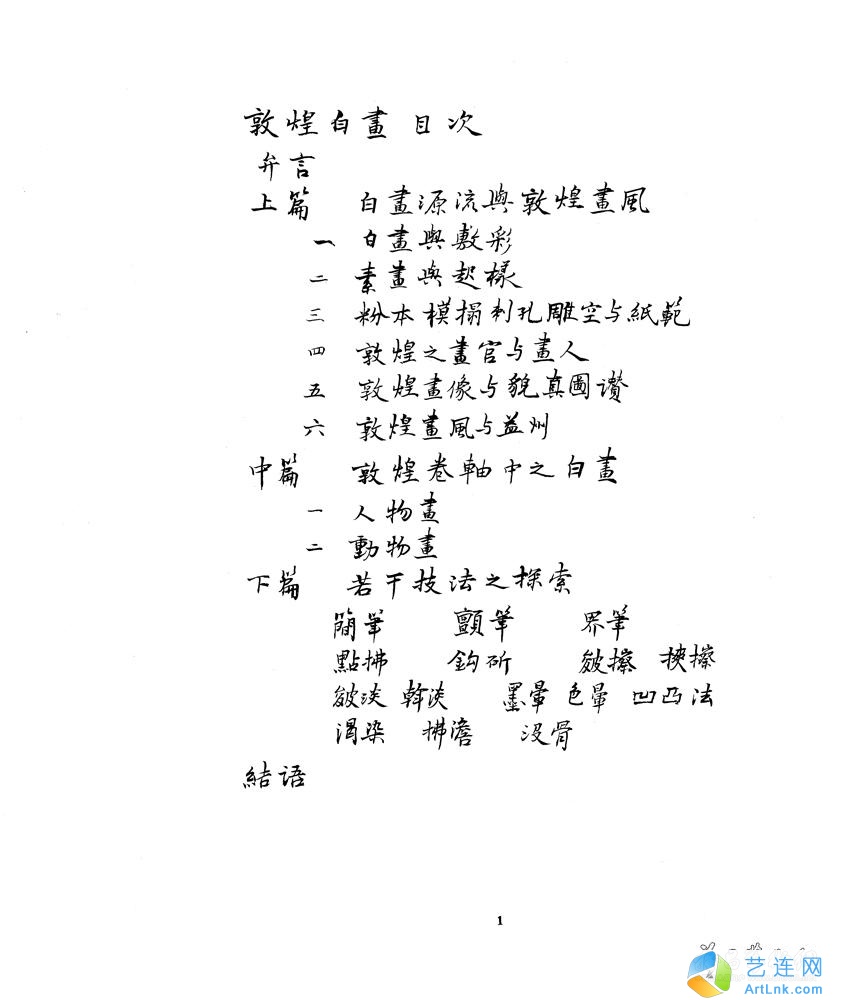 敦煌白畫 目次
弁言
上篇 白畫源流與敦煌畫風
一 白畫與敷彩
二 素畫與起樣
三 粉本模搨刺孔雕空与紙範
四 敦煌之畫官与畫人
五 敦煌畫像与貌真圖讚
六 敦煌畫風与益州
中篇 敦煌卷軸中之白畫
一 人物畫
二 動物畫
下篇 若干技法之探索
簡筆 顫筆 界筆
點拂 鈎斫 皴擦 挾擦
皴淡 斡淡 墨暈 色暈 凹凸法
渴染 拂澹 没骨
結语
1
艺连网
ArtLnk.com